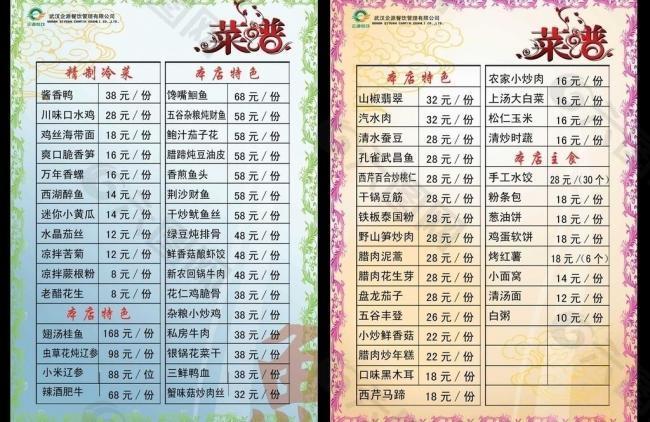 武汉企源餐饮管理有限公司
菜谱
精制冷菜
酱香鸭 38 元/份
川味口水鸡 28 元/份
鸡丝海带面 18 元/份
爽口脆香笋 18 元/份
万年香螺 16 元/份
西湖醉鱼 14 元/份
迷你小黄瓜 14 元/份
水晶茄丝 12 元/份
凉拌苦菊 12 元/份
凉拌蕨根粉 8 元/份
老醋花生 8 元/份
本店特色
翅汤桂鱼 168 元/份
虫草花炖辽参 98 元/份
小米辽参 88 元/位
辣酒肥牛 68 元/份
本店特色
馋嘴鮰鱼 68 元/份
五谷杂粮炖财鱼 58 元/份
鲍汁茄子花 58 元/份
腊蹄炖豆油皮 58 元/份
香煎鱼头 58 元/份
荆沙财鱼 58 元/份
干炒鱿鱼丝 58 元/份
绿豆炖排骨 48 元/份
鲜香菇酿虾饺 48 元/份
新农回锅牛肉 48 元/份
花仁鸡脆骨 38 元/份
杂粮小炒鸡 38 元/份
私房牛肉 38 元/份
银锅花菜干 38 元/份
三鲜鸭血 38 元/份
蟹味菇炒肉丝 32 元/份
武汉企源餐饮管理有限公司
菜谱
本店特色
山椒翡翠 32 元/份
汽水肉 32 元/份
清水蚕豆 28 元/份
孔雀武昌鱼 28 元/份
西芹百合炒桃仁 28 元/份
干锅豆筋 28 元/份
铁板泰国粉 28 元/份
野山笋炒肉 28 元/份
腊肉泥蒿 28 元/份
腊肉花生芽 28 元/份
盘龙茄子 28 元/份
五谷丰登 26 元/份
小炒鲜香菇 22 元/份
腊肉炒年糕 22 元/份
口味黑木耳 18 元/份
西芹马蹄 18 元/份
农家小炒肉 16 元/份
上汤大白菜 16 元/份
松仁玉米 16 元/份
清炒时蔬 16 元/份
本店主食
手工水饺 28元/(30个)
粉条包 18 元/份
葱油饼 18 元/份
鸡蛋软饼 18 元/份
烤红薯 18元/(6个)
小面窝 14 元/份
清汤面 12 元/份
白粥 10 元/份